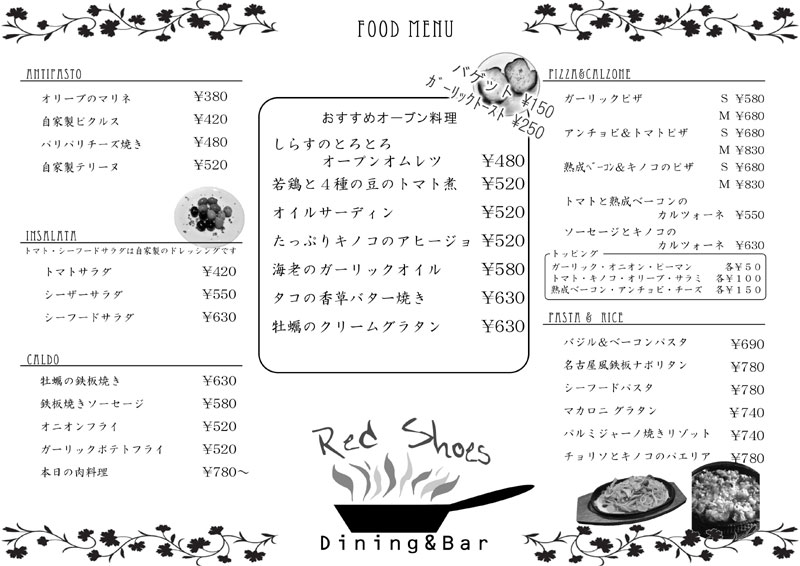 FOOD MENU
ANTIPASTO
オリーブのマリネ ¥380
自家製ピクルス ¥420
パリパリチーズ焼き ¥480
自家製テリーヌ ¥520
INSALATA
トマト・シーフードサラダは自家製のドレッシングです
トマトサラダ ¥420
シーザーサラダ ¥550
シーフードサラダ ¥630
CALDO
牡蠣の鉄板焼き ¥630
鉄板焼きソーセージ ¥580
オニオンフライ ¥520
ガーリックポテトフライ ¥520
本日の肉料理 ¥780～
バゲット ¥150
ガーリックトースト ¥250
おすすめオーブン料理
しらすのとろとろ
オーブンオムレツ ¥480
若鶏と４種の豆のトマト煮 ¥520
オイルサーディン ¥520
たっぷりキノコのアヒージョ ¥520
海老のガーリックオイル ¥580
タコの香草バター焼き ¥630
牡蠣のクリームグラタン ¥630
Red Shoes
Dining&Bar
PIZZA&CALZONE
ガーリックピザ S ¥580
M ¥680
アンチョビ＆トマトピザ S ¥680
M ¥830
熟成ベーコン＆キノコのピザ S ¥680
M ¥830
トマトと熟成ベーコンの
カルツォーネ ¥550
ソーセージとキノコの
カルツォーネ ¥630
トッピング
ガーリック・オニオン・ピーマン 各￥５０
トマト・キノコ・オリーブ・サラミ 各￥１００
熟成ベーコン・アンチョビ・チーズ 各￥１５０
PASTA & RICE
バジル＆ベーコンパスタ ¥690
名古屋風鉄板ナポリタン ¥780
シーフードパスタ ¥780
マカロニ グラタン ¥740
パルミジャーノ焼きリゾット ¥740
チョリソとキノコのパエリア ¥780